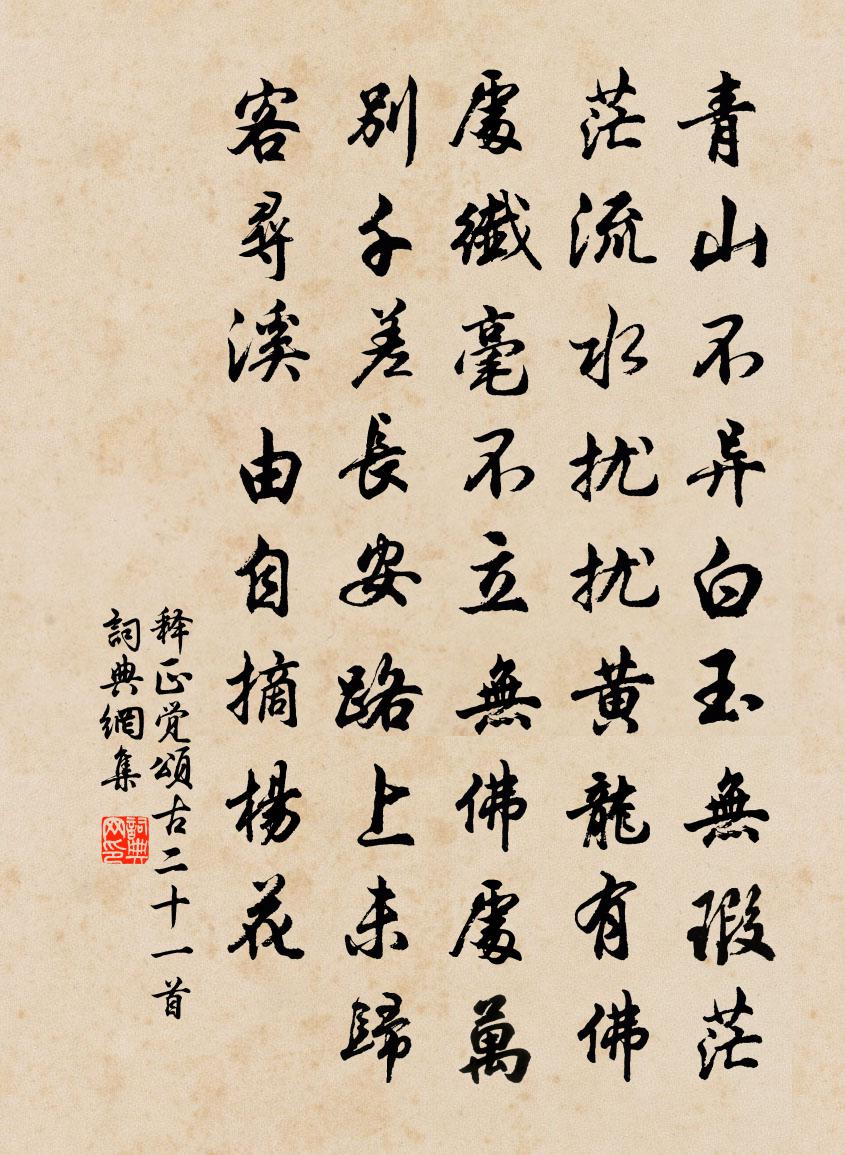 青山不异白玉無瑕茫
茫流水扰扰黄龍有佛
處纖毫不立無佛處萬
別千差長安路上未歸
客尋溪由自摘楊花
释正觉頌古二十一首
詞典網集
詞典网印